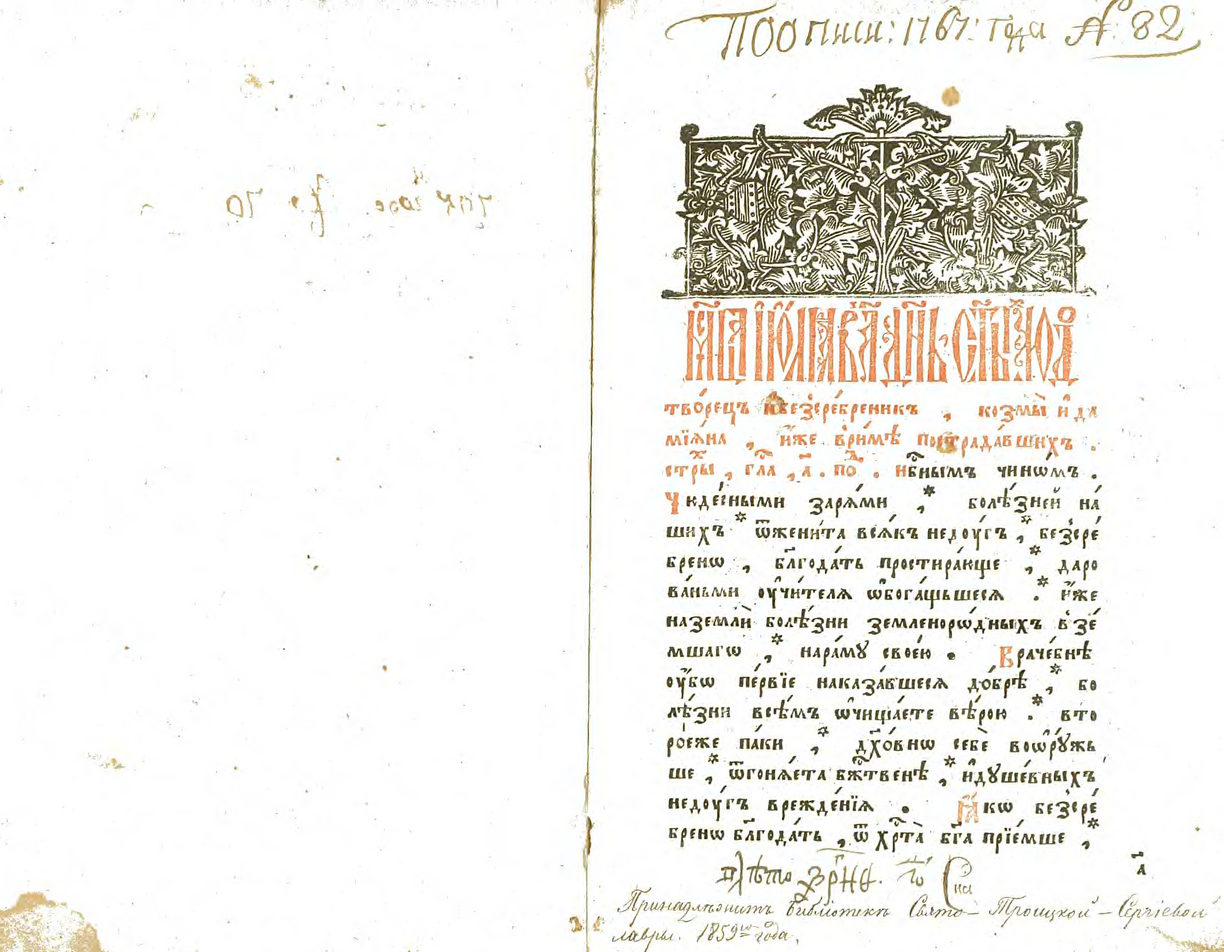 По описи: 1767: года № 82
мⷭ҇ца і҆ю́лиѧ в҃ а҃ дн҃ь ст҃ы́хъ чюдо
тво́рєцъ и҆бєзсрє́брєникъ , козмы̀ и҆ да
мїѧ́на , и҆́жє в̾ри́мѣ пострада́вшихъ .
стⷯры , гла́ , а҃ . поⷣ . нбⷭ҇нымъ чи́нѡмъ .
Чюдє́сными заря́ми , * болѣ́знєй на́
шихъ * ѿжєни́та всѧ́къ нєдꙋ́гъ , * бєзсрє́
брєнѡ , блгода́ть простира́ющє , * даро
ва́ньми ᲂу҆чи́тєлѧ ѡ҆богащьшєсѧ . * и҆́жє
назємлѝ болѣ́зни зємлєноро́дныхъ взє́
мшагѡ , * нара́мꙋ своє́ю . Врачє́бнѣ
ᲂу҆́бѡ пє́рвїє наказа́вшєсѧ до́брѣ , * бо
лѣ́зни всѣ́мъ ѡ҆чища́єтє вѣ́рою . * вто
ро́єжє па́ки , * дꙋхо́внѡ сєбѐ воѡрꙋ́жь
шє , * ѿгонѧ́єта бжⷭ҇твєнѣ , * и҆дꙋшє́вныхъ
нєдꙋ́гъ врєждє́нїѧ . Ꙗ҆́кѡ бєзсрє́
брєнѡ блгода́ть , ѿ хрⷭ҇та̀ бг҃а прїє́мшє , *
а҃
Принадлежитъ Библіотекѣ Свято-Троицкой-Сергіевой
лавры. 1859го года.